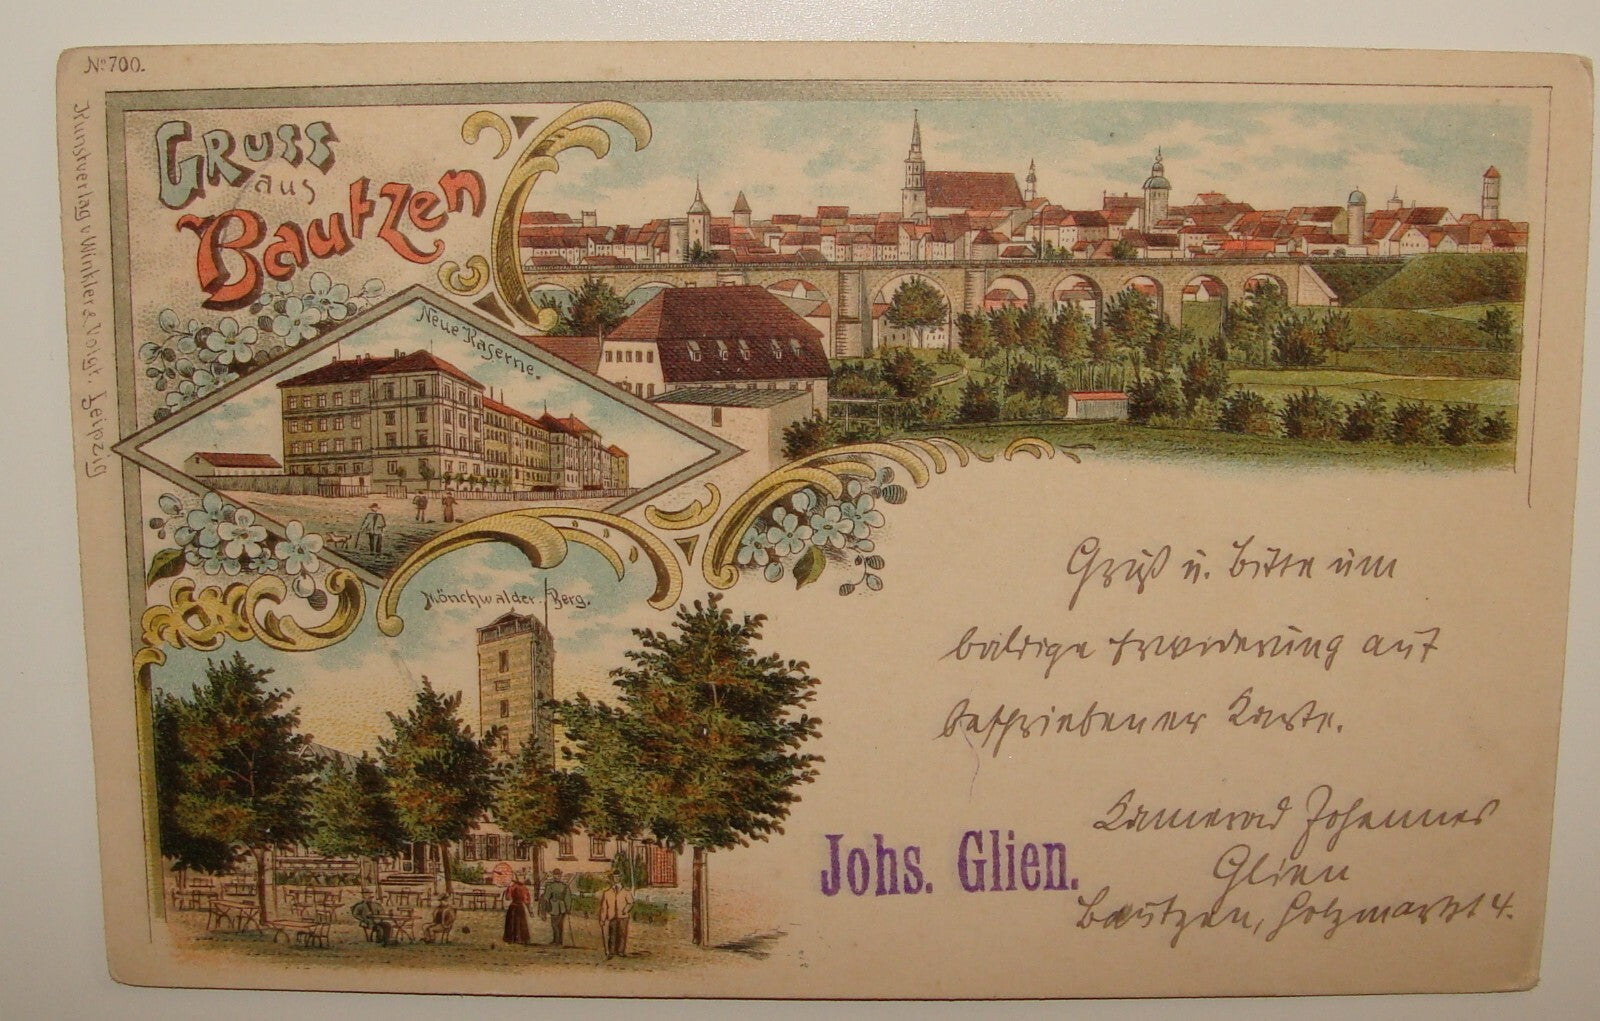 No 700.
Kunstverlag v. Winkler & Voigt. Leipzig
GRUSS
aus
Bautzen
Neue Kaserne.
Mönchwalder-Berg.
Gruß u. bitte um
baldige Erwiderung auf
beschriebener Karte.
Kamerad Johannes
Glien
Bautzen, Holzmarkt 4.
Johs. Glien.